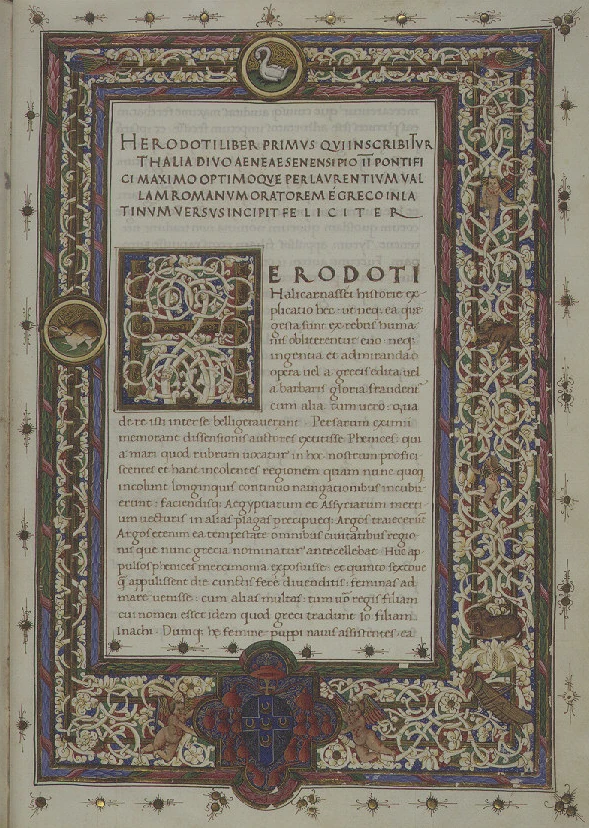 HERODOTI LIBER PRIMVS QVI INSCRIBITVR
THALIA DIVO AENEAE SENENSI PIO II PONTIFI
CI MAXIMO OPTIMOQVE PER LAVRENTIVM VAL
LAM ROMANVM ORATOREM E GRECO IN LA
TINVM VERSVS INCIPIT FELICITER
HERODOTI
Halicarnassei historie ex
plicatio hec ut neq ea que
gesta sunt ex rebus huma
nis obliterentur euo neq
ingentia et admiranda
opera uel a grecis edita uel
a barbaris gloria fraudent
cum alia tum uero qua
de re isti inter se belligerauerunt Persarum eximii
memorant dissensionis auctores extitisse Phenices qui
a mari quod rubrum uocatur in hoc nostrum profici
scentes et hanc incolentes regionem quam nunc quoq
incolunt longinquis continuo nauigationibus incubu
erunt faciendisq Aegyptiarum et Assyriarum merci
um uecturis in alias plagas precipueq Argos traiecerunt
Argos etenim ea tempestate omnibus ciuitatibus regio
nis que nunc grecia nominatur antecellebat Huc ap
pulsos phenices mercimonia exposuisse et quinto sextoue
q appulissent die cunctis fere diuenditis feminas ad
mare uenisse cum alias multas tum regis filiam
cui nomen esset idem quod greci tradunt Io filiam
Inachi Dumq he femine puppi nauis assistentes ea